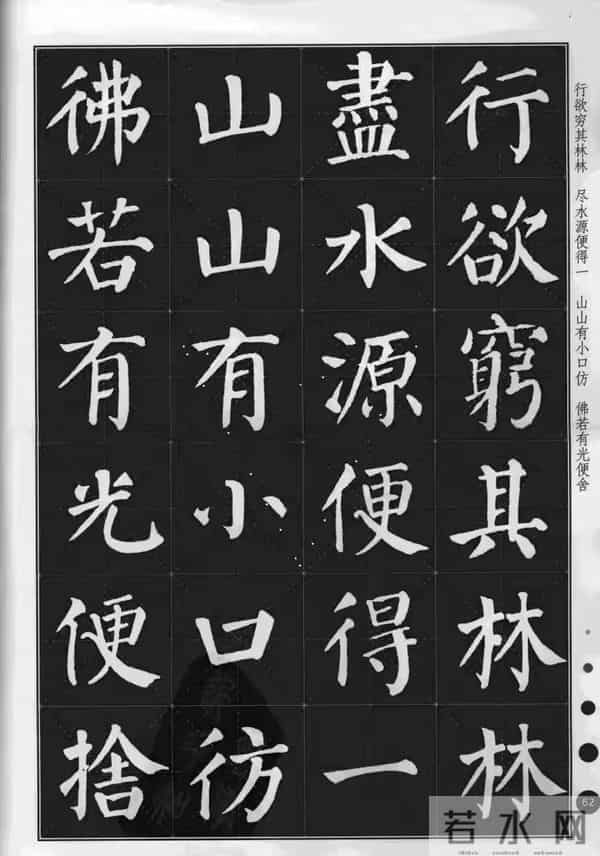 行欲窮其林林
盡水源便得一
山山有小口彷
彿若有光便捨
行欲穷其林林 尽水源便得一 山山有小口仿 佛若有光便舍
62
若水网